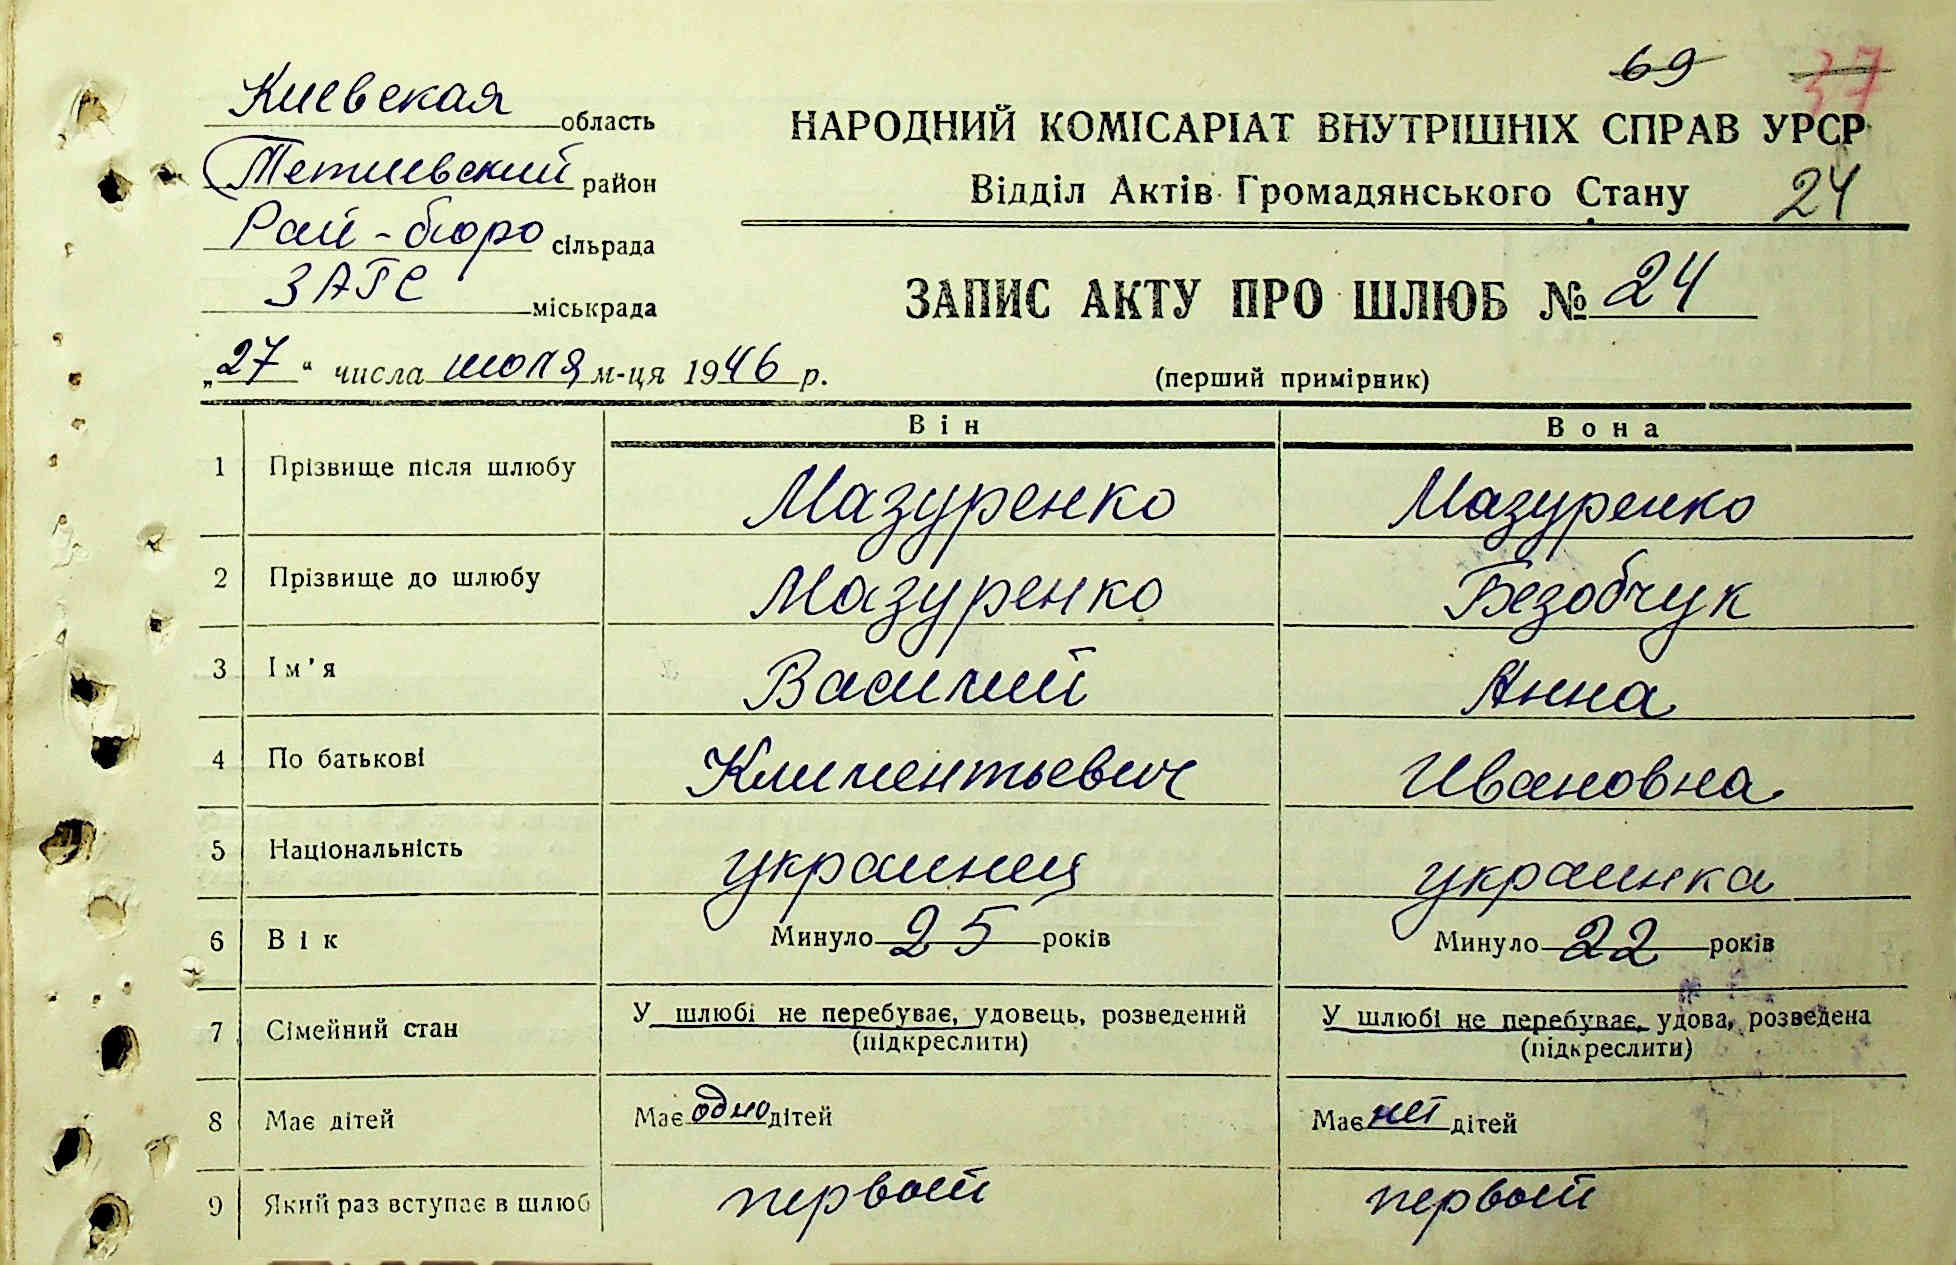 69 37
Киевская область
Тетиевский район
Рай-бюро сільрада
ЗАГС міськрада
„27“ числа июля м-ця 1946 р.
НАРОДНИЙ КОМІСАРІАТ ВНУТРІШНІХ СПРАВ УРСР
Відділ Актів Громадянського Стану 24
ЗАПИС АКТУ ПРО ШЛЮБ № 24
(перший примірник)
Він Вона
1 Прізвище після шлюбу Мазуренко Мазуренко
2 Прізвище до шлюбу Мазуренко Безобчук
3 Ім'я Василий Анна
4 По батькові Климентьевич Ивановна
5 Національність украинец украинка
6 Вік Минуло 25 років Минуло 22 років
7 Сімейний стан У шлюбі не перебуває, удовець, розведений У шлюбі не перебуває, удова, розведена
(підкреслити) (підкреслити)
8 Має дітей Має одно дітей Має нет дітей
9 Який раз вступає в шлюб первый первый